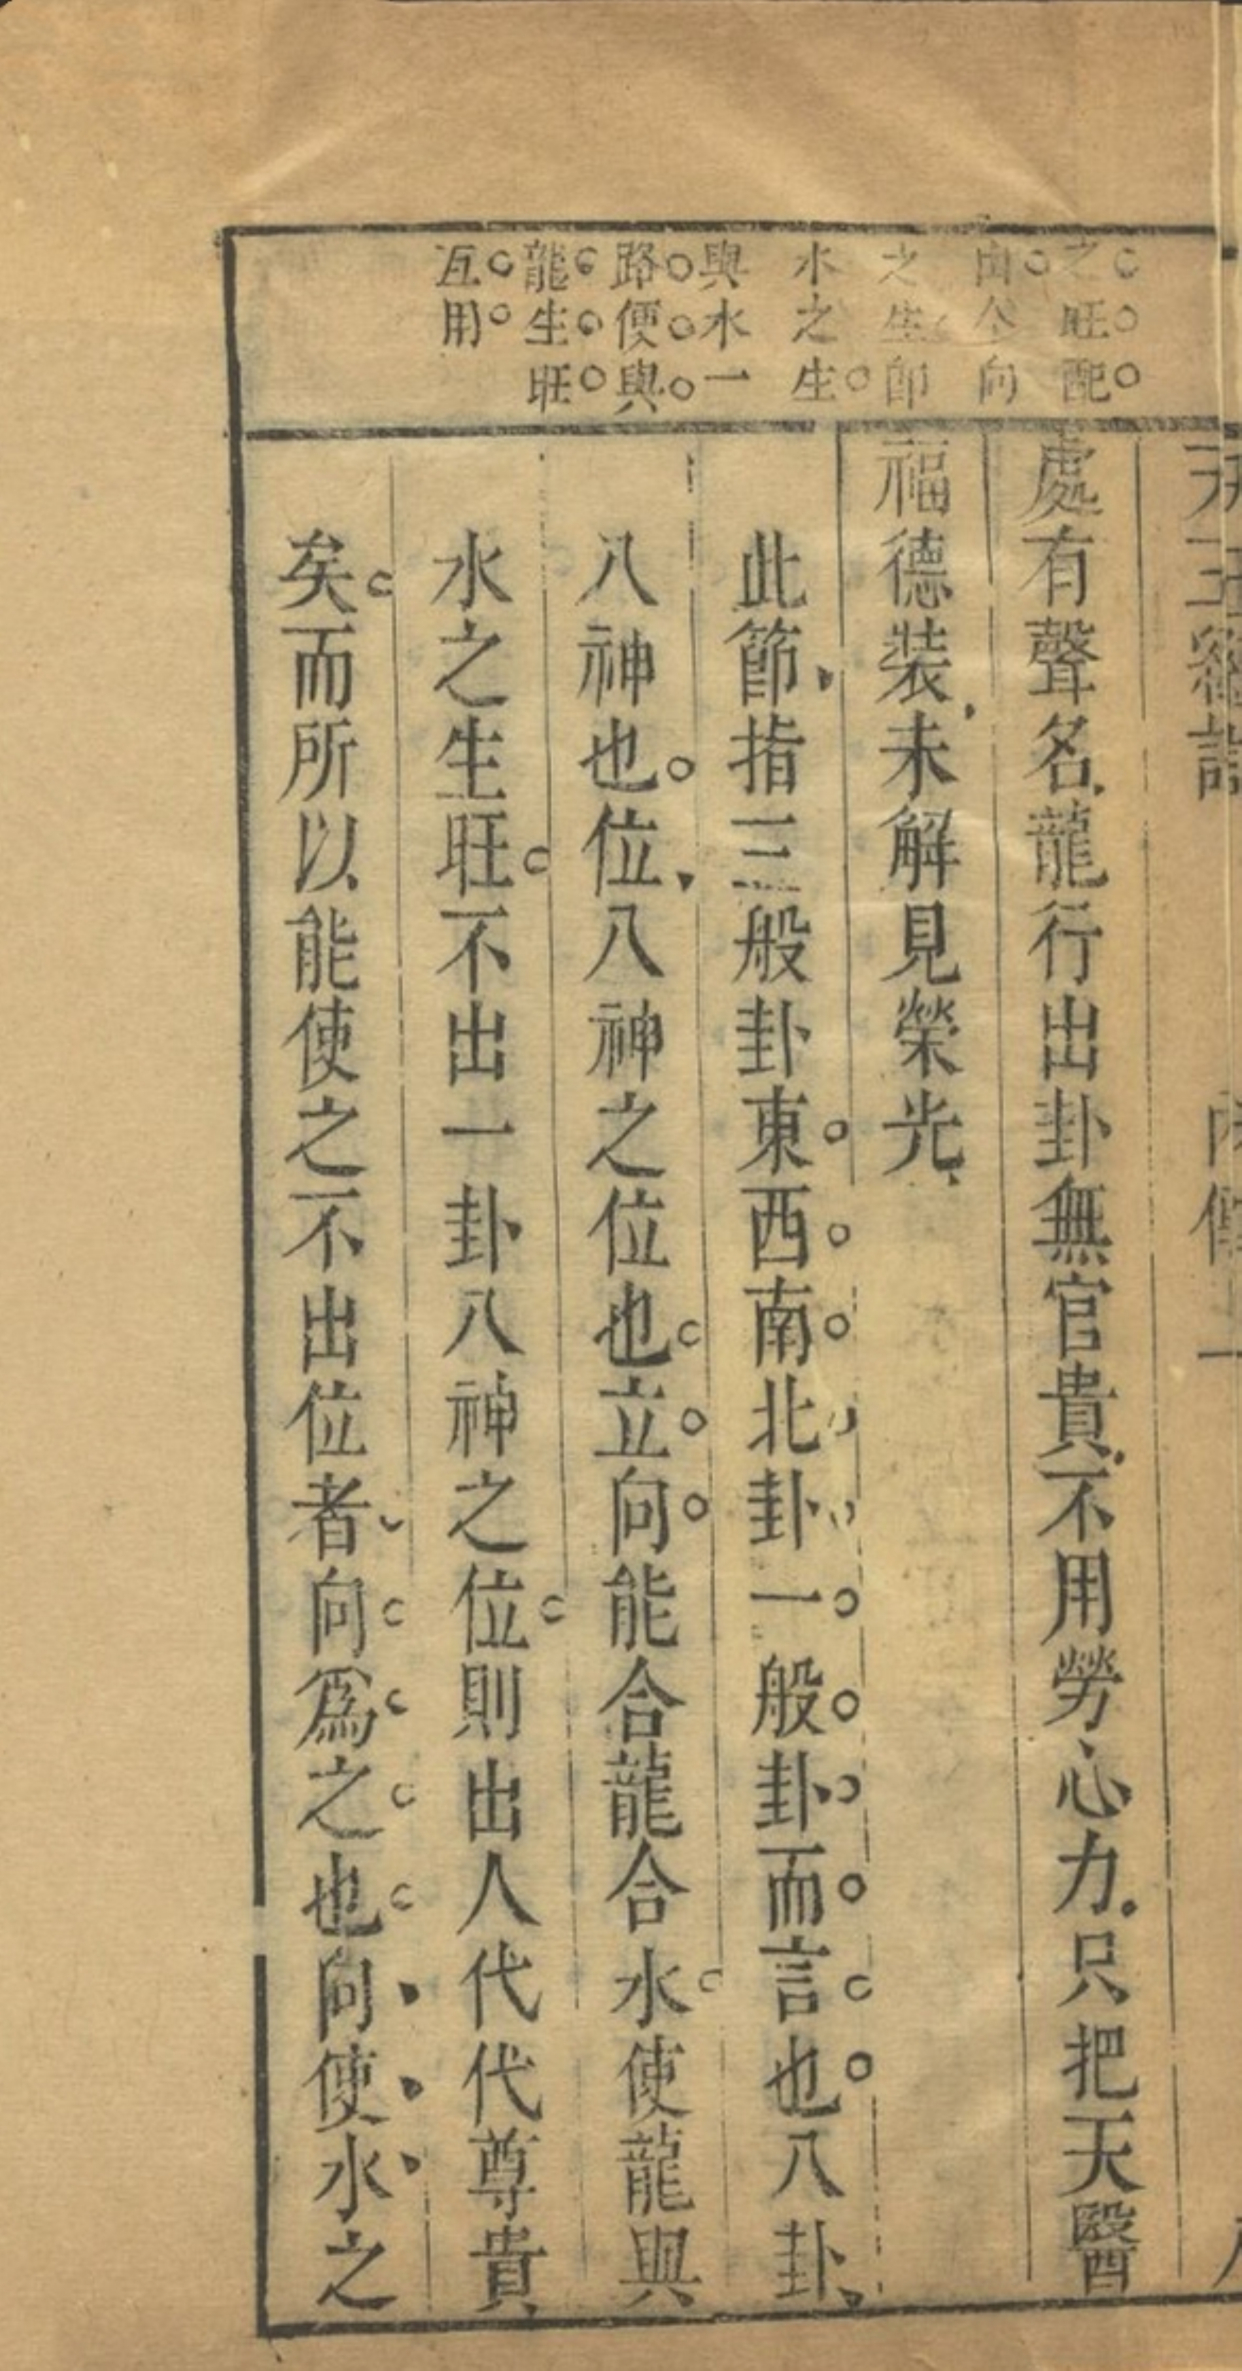 之旺配
由仝向
之生卽
水之生
與水一
路便與
龍生旺
互用
處有聲名龍行出卦無官貴不用勞心力只把天醫
福德裝未解見榮光
此節指三般卦東西南北卦一般卦而言也八卦
八神也位八神之位也立向能合龍合水使龍與
水之生旺不出一卦八神之位則出人代代尊貴
矣而所以能使之不出位者向爲之也向使水之